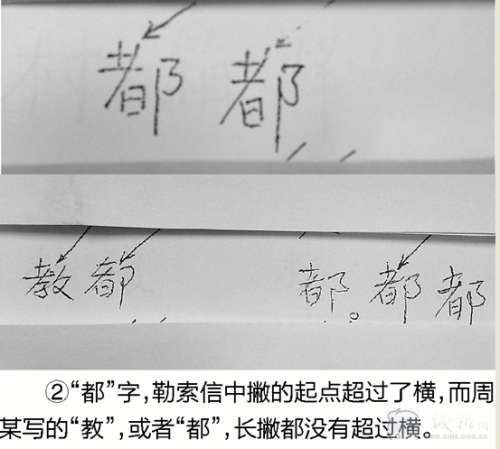 都 都
教 都 都。都 都
②“都”字,勒索信中撇的起点超过了横,而周
某写的“教”,或者“都”,长撇都没有超过横。